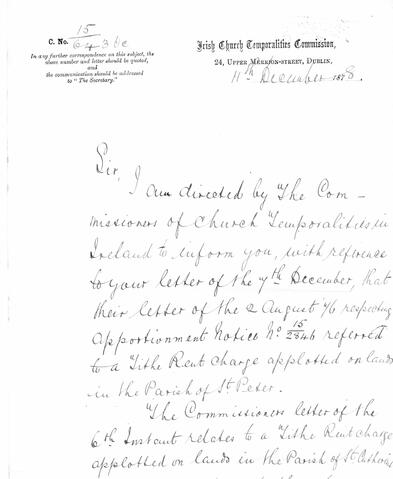 15
C. No. 643 be
In any further correspondence on this subject, the
above number and letter should be quoted,
and
the communication should be addressed
to "The Secretary."
Irish Church Temporalities Commission,
24, Upper Merrion-street, Dublin,
11th December 1878.
Sir,
I am directed by The Com-
missioners of Church Temporalities in
Ireland to inform you, with reference
to your letter of the 7th December, that
their letter of the 2 August 76 respecting
Apportionment Notice No. 15/2846 referred
to a Tithe Rent Charge applotted on lands
in the Parish of St Peter.
The Commissioners letter of the
6th Instant relates to a Tithe Rent Charge
applotted on lands in the Parish of St Catherine